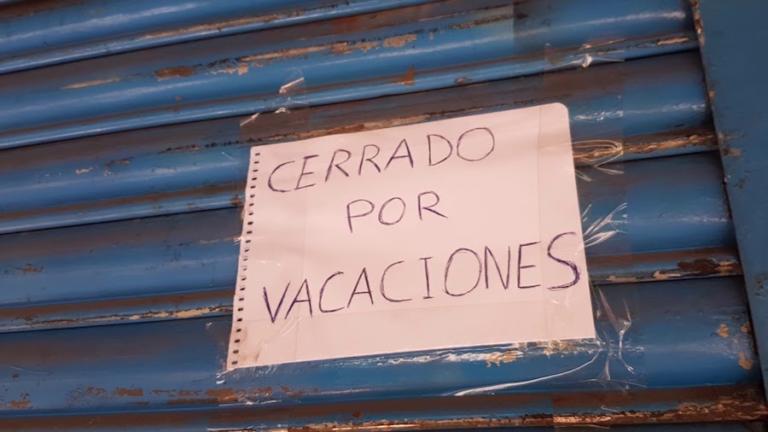 CERRADO
POR
VACACIONES